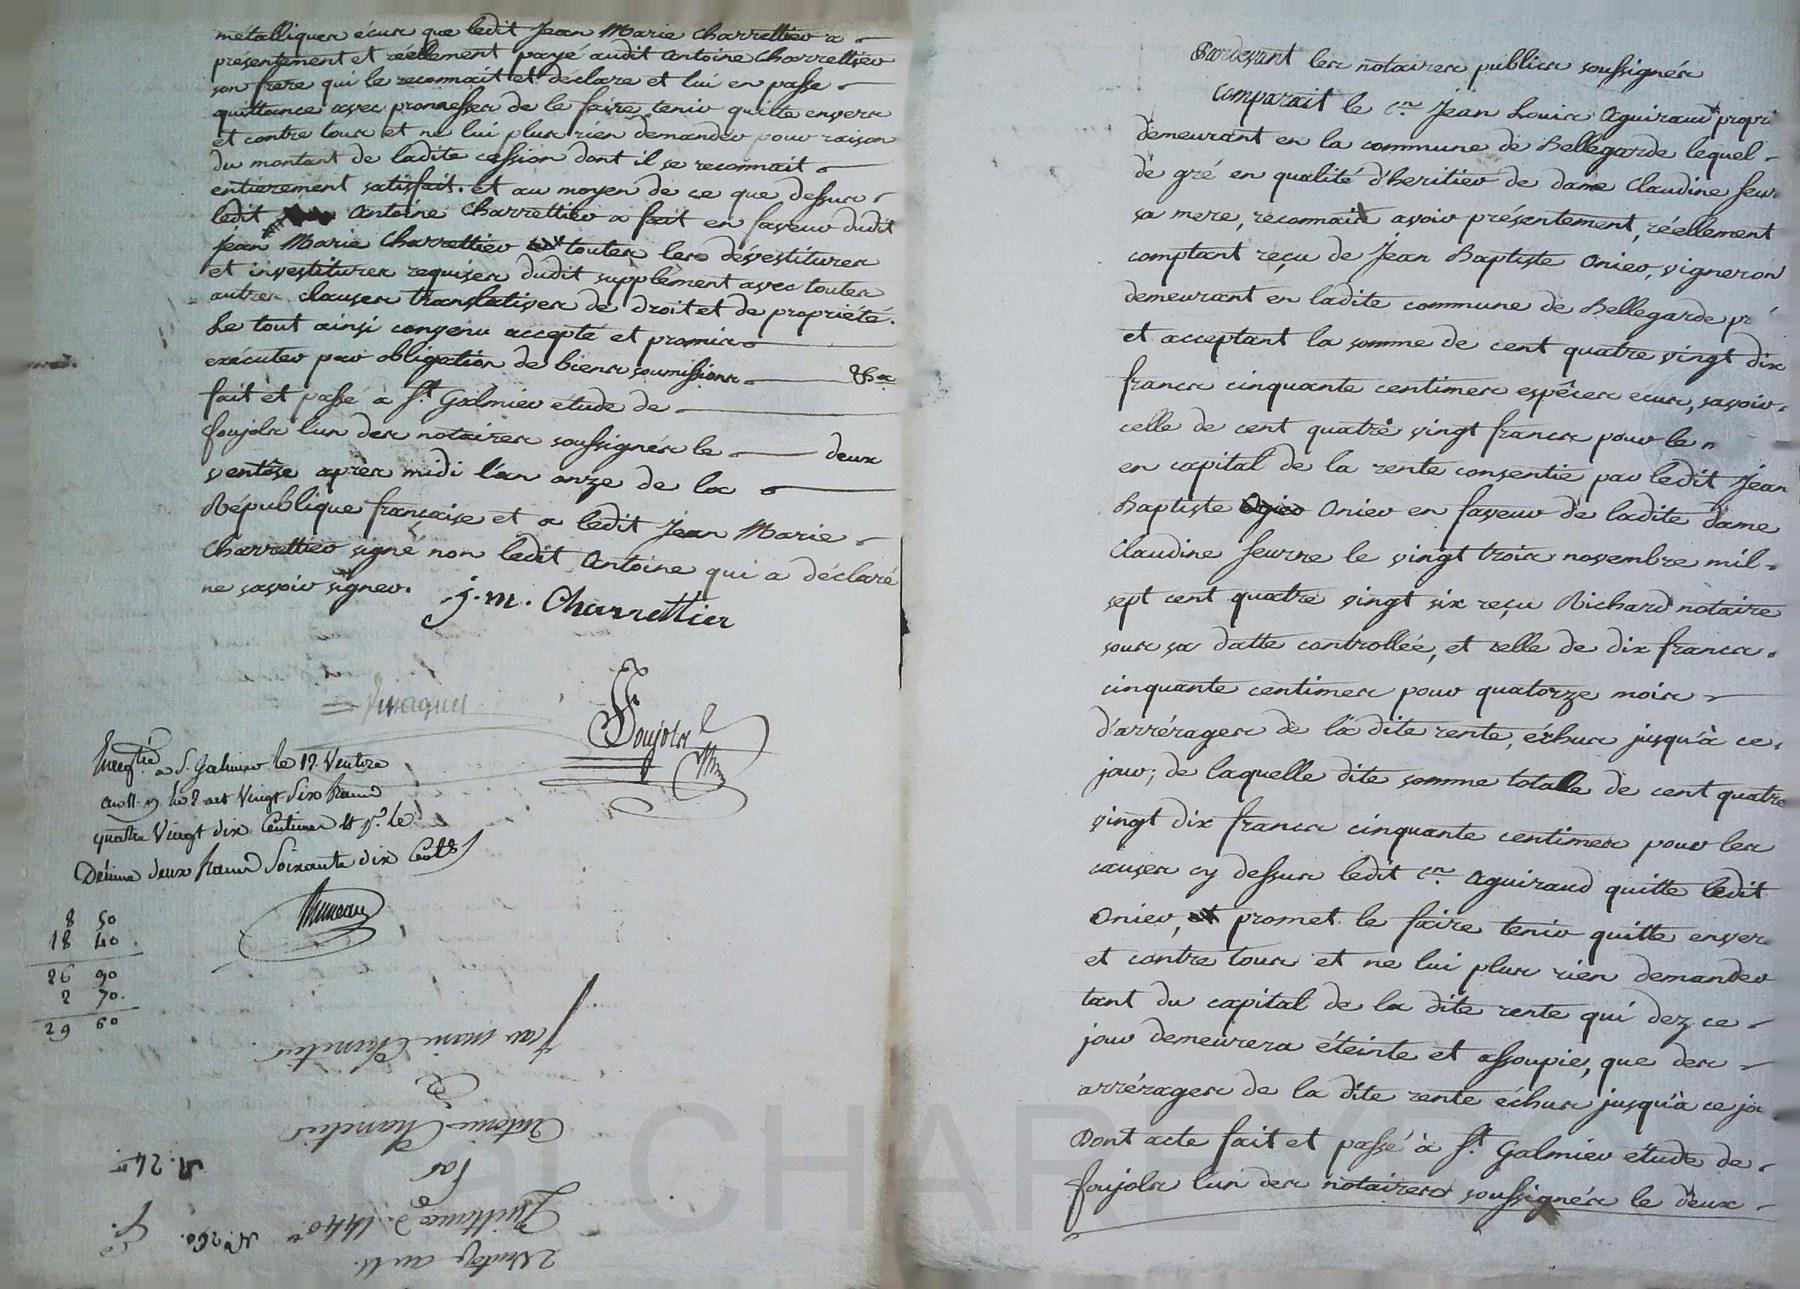 métalliques écus que ledit Jean Marie Charrettier a
présentement et réellement payé audit Antoine Charrettier
son frere qui le reconnait et déclare et lui en passe
quittance avec promesses de le faire tenir quitte envers
et contre tous et ne lui plus rien demander pour raison
du montant de ladite cession dont il se reconnait
entierement satisfait. et au moyen de ce que dessus
ledit Antoine Charrettier a fait en faveur dudit
Jean Marie Charrettier toutes les dévestitures
et investitures requises dudit supplément avec toutes
autres clauses translatives de droit et de propriété.
Le tout ainsi convenu accepté et promis
exécuter par obligation de biens soumissions &a
fait et passé à St Galmier étude de
foujols l'un des notaires soussignés le deux
ventôse après midi l'an onze de la
République française et a ledit Jean Marie
Charrettier signé non ledit Antoine qui a déclaré
ne savoir signer.
J. M. Charrettier
Foujols
Enregtré a S. Galmier le 12 Ventose
an 11 Vingt Six francs
quatre Vingt dix Centimes le
Décime deux francs Soixante dix Cent.
8 50
18 40
26 90
2 70
29 60
Jean marie Charretier
a
Antoine Charretier
par
Quittance d. 1440
2 Ventose an 11
N. 24
N° 260
Pardevant les notaires publics soussignés
Comparait le Cen Jean Louis Aguiraud propri
demeurant en la commune de Bellegarde lequel
de gré en qualité d'heritier de dame Claudine feur
sa mere, reconnait avoir présentement, réellement
comptant reçu de Jean Baptiste Onier, vigneron
demeurant en ladite commune de Bellegarde pr
et acceptant la somme de cent quatre vingt dix
francs cinquante centimes espèces ecus, savoir
celle de cent quatre vingt francs pour le
en capital de la rente consentie par ledit Jean
Baptiste Onier en faveur de ladite dame
Claudine feurre le vingt trois novembre mil
sept cent quatre vingt six reçu Richard notaire
sous sa datte controllée, et celle de dix francs
cinquante centimes pour quatorze mois
d'arrérages de la dite rente, échus jusqu'à ce
jour; de laquelle dite somme totalle de cent quatre
vingt dix francs cinquante centimes pour les
causes cy dessus ledit Cen Aguiraud quitte ledit
Onier, promet le faire tenir quitte enver
et contre tous et ne lui plus rien demander
tant du capital de la dite rente qui dez ce
jour demeurera éteinte et assoupie, que des
arrérages de la dite rente échus jusqu'à ce jo
Dont acte fait et passé à St Galmier étude de
foujols l'un des notaires soussignés le deux